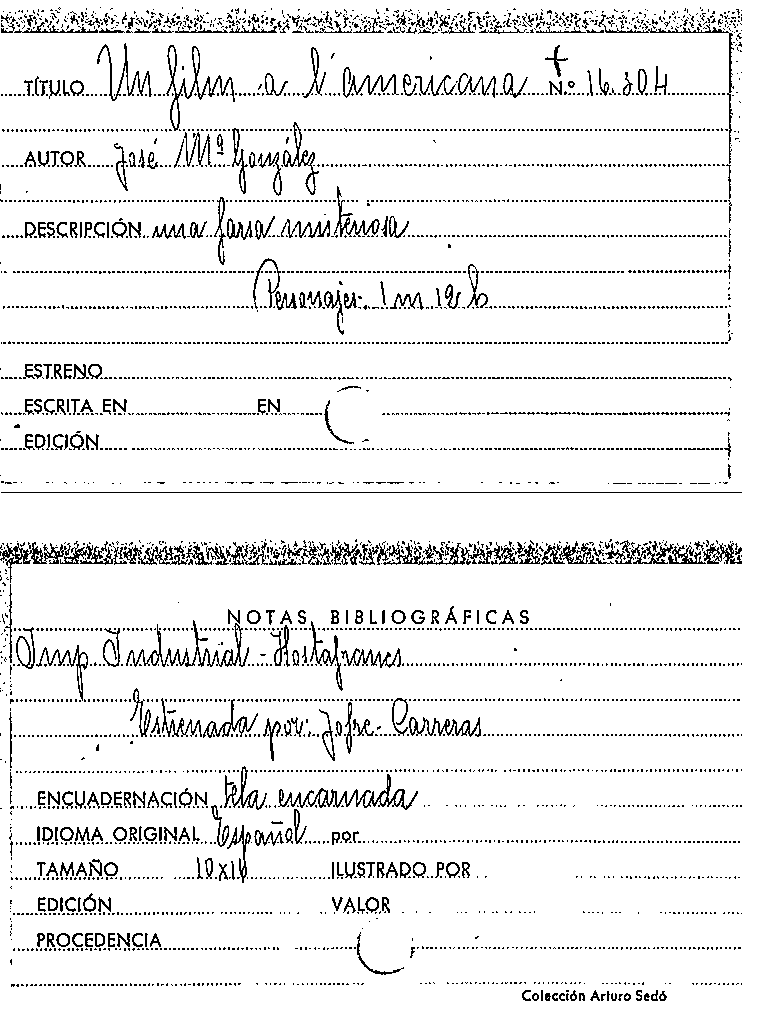 TÍTULO Un film a l'americana Nº 16.304
AUTOR José Mª González
DESCRIPCIÓN una farsa misteriosa
Personajes. 1 m 12 h
ESTRENO
ESCRITA EN EN
EDICIÓN
NOTAS BIBLIOGRÁFICAS
Imp. Industrial - Hostafrancs
Estrenada por: Jofre - Carreras
ENCUADERNACIÓN tela encarnada
IDIOMA ORIGINAL Español por
TAMAÑO 10x16 ILUSTRADO POR
EDICIÓN VALOR
PROCEDENCIA
Colección Arturo Sedó